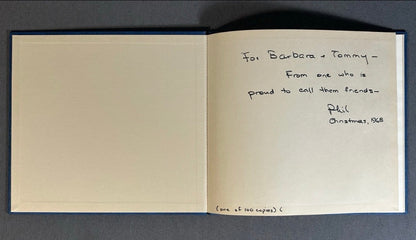 For Barbara + Tommy –
From one who is
proud to call them friends –
Phil
Christmas, 1968
(one of 100 copies)